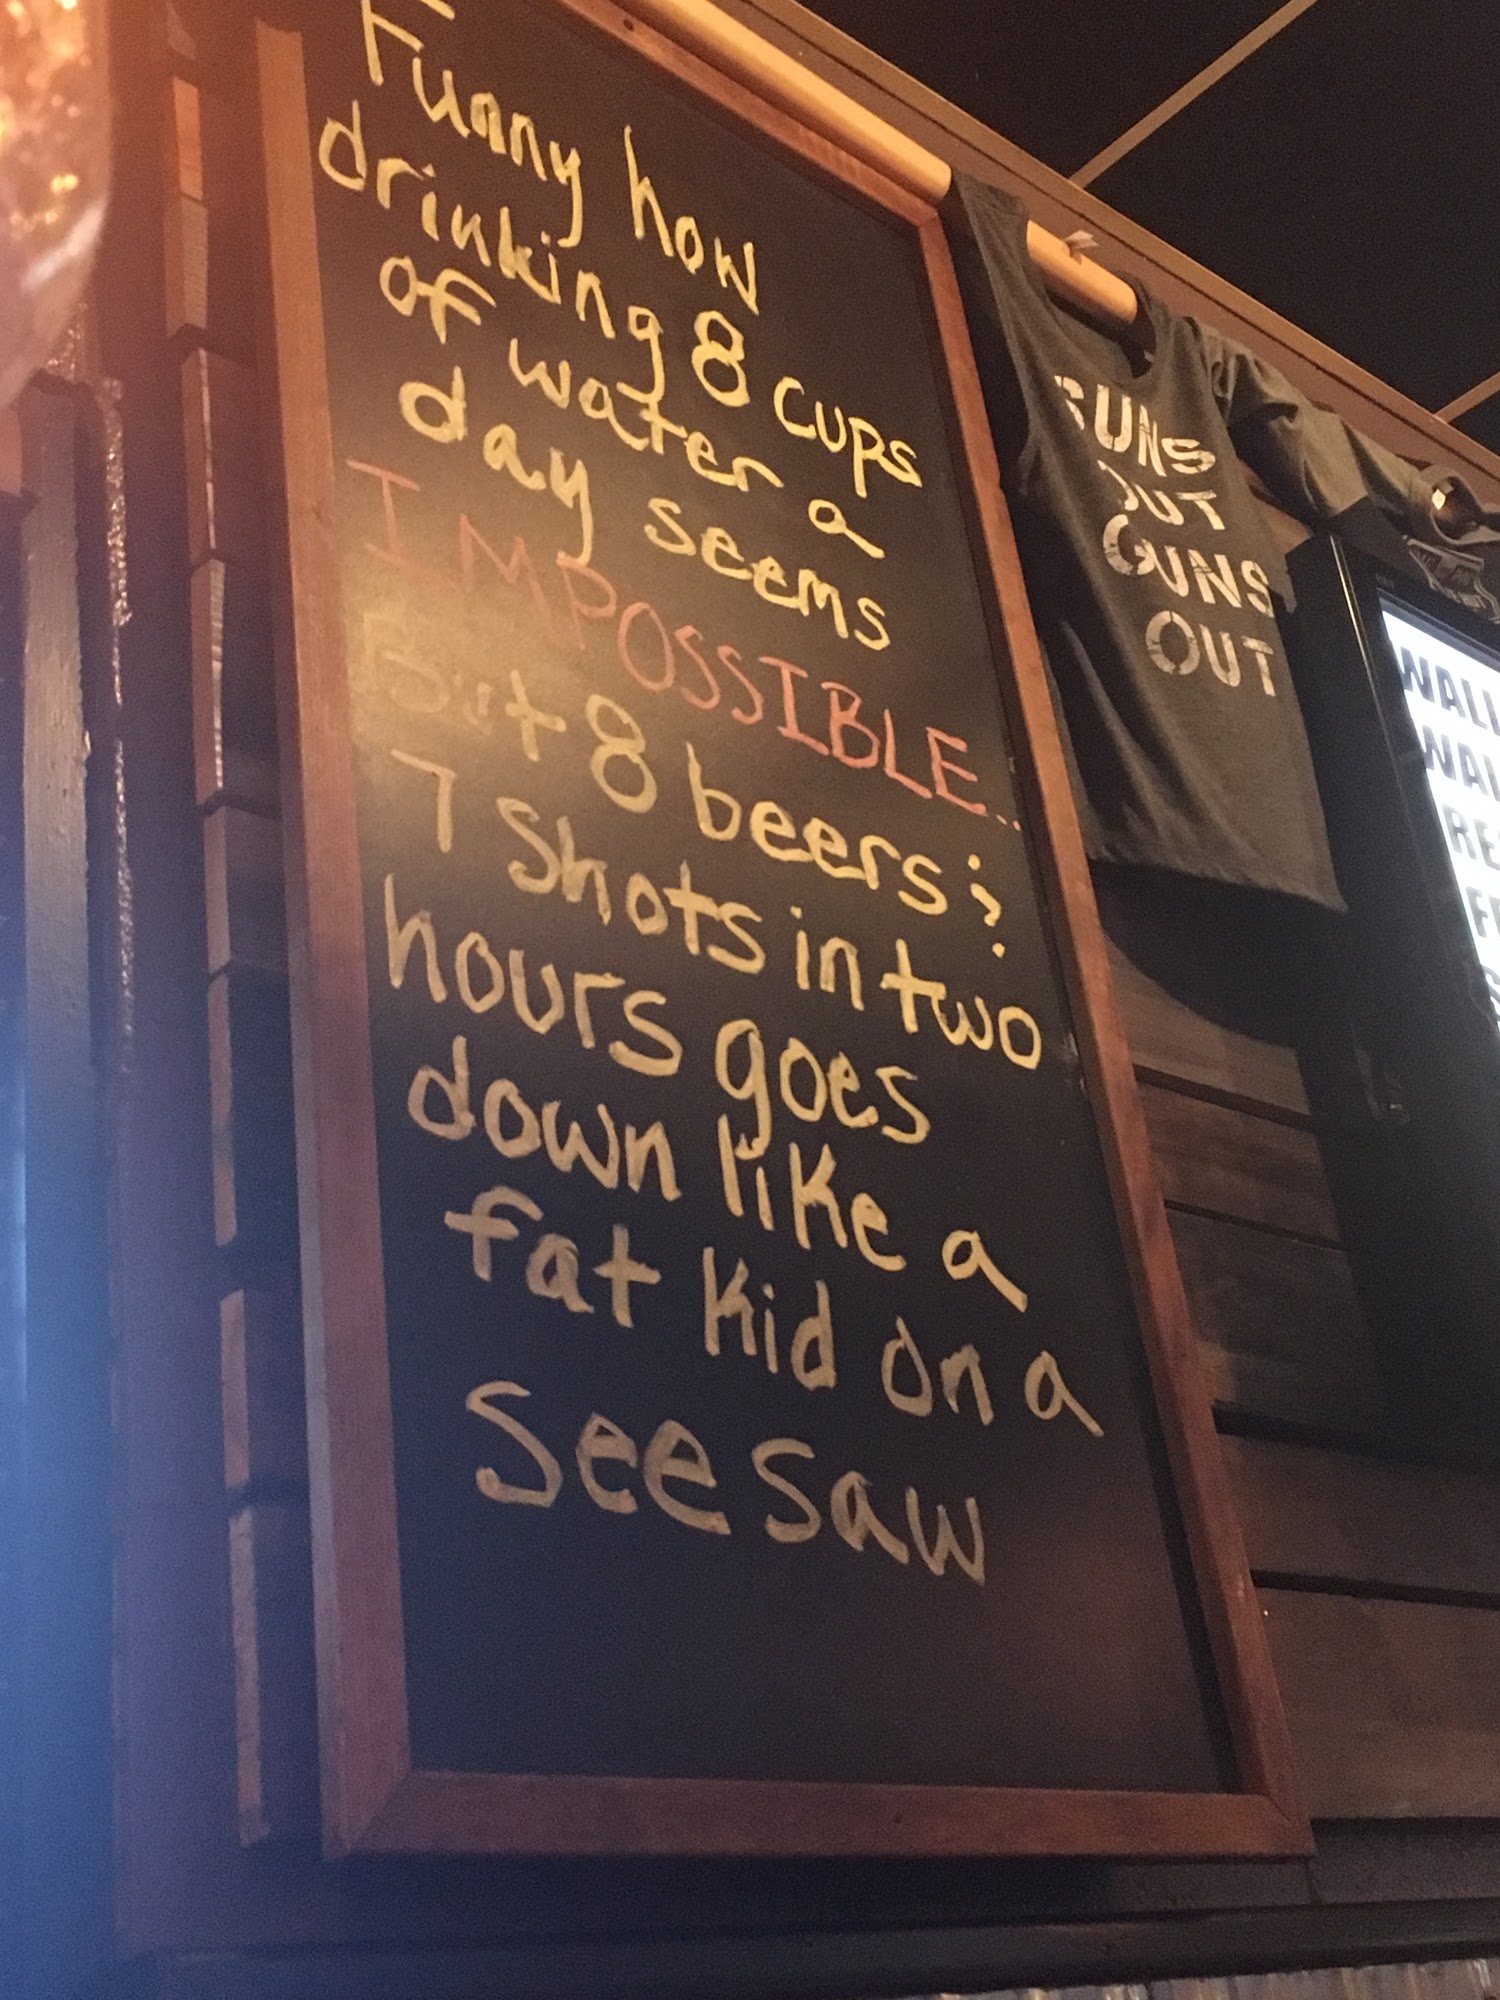 Funny how
drinking 8 cups
of water a
day seems
IMPOSSIBLE...
But 8 beers &
7 Shots in two
hours goes
down like a
fat kid on a
See saw
SUNS
OUT
GUNS
OUT